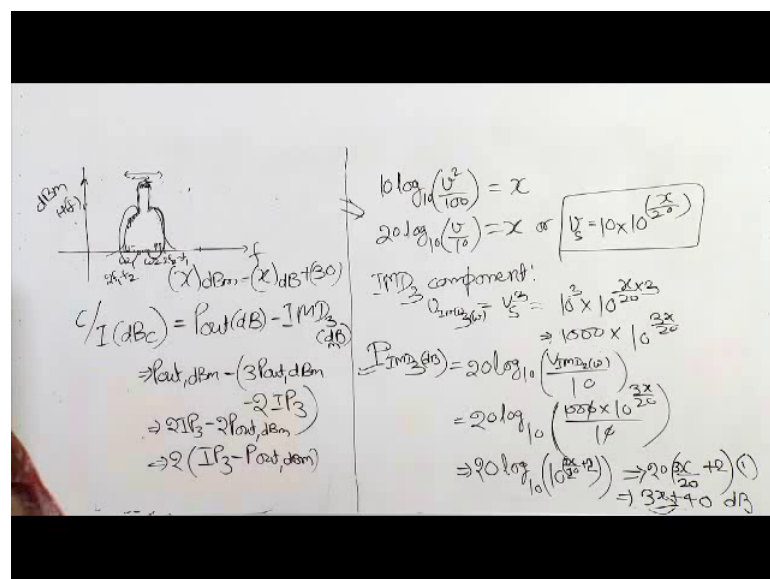 dBm
H(f)
f
2f₁-f₂
(x)dBm = (x)dB + (30)
C/I (dBc) = Pout(dB) - IMD₃ (dBm)
⇒ Pout,dBm - (3Pout,dBm
-2IP₃)
⇒ 2IP₃ - 2Pout,dBm
⇒ 2(IP₃ - Pout,dBm)
10 log₁₀(v²/100) = x
20 log₁₀(v/10) = x or Vs = 10 × 10^(x/20)
IMD₃ component:
V_IMD₃(v) = Vs³ = 10³ × 10^(x×3/20)
⇒ 1000 × 10^(3x/20)
P_IMD₃(dB) = 20 log₁₀(V_IMD₃(v)/10)
= 20 log₁₀(1000 × 10^(3x/20)/10)
⇒ 20 log₁₀(10^(3x/20 + 2)) ⇒ 20(3x/20 + 2) (1)
⇒ 3x + 40 dB